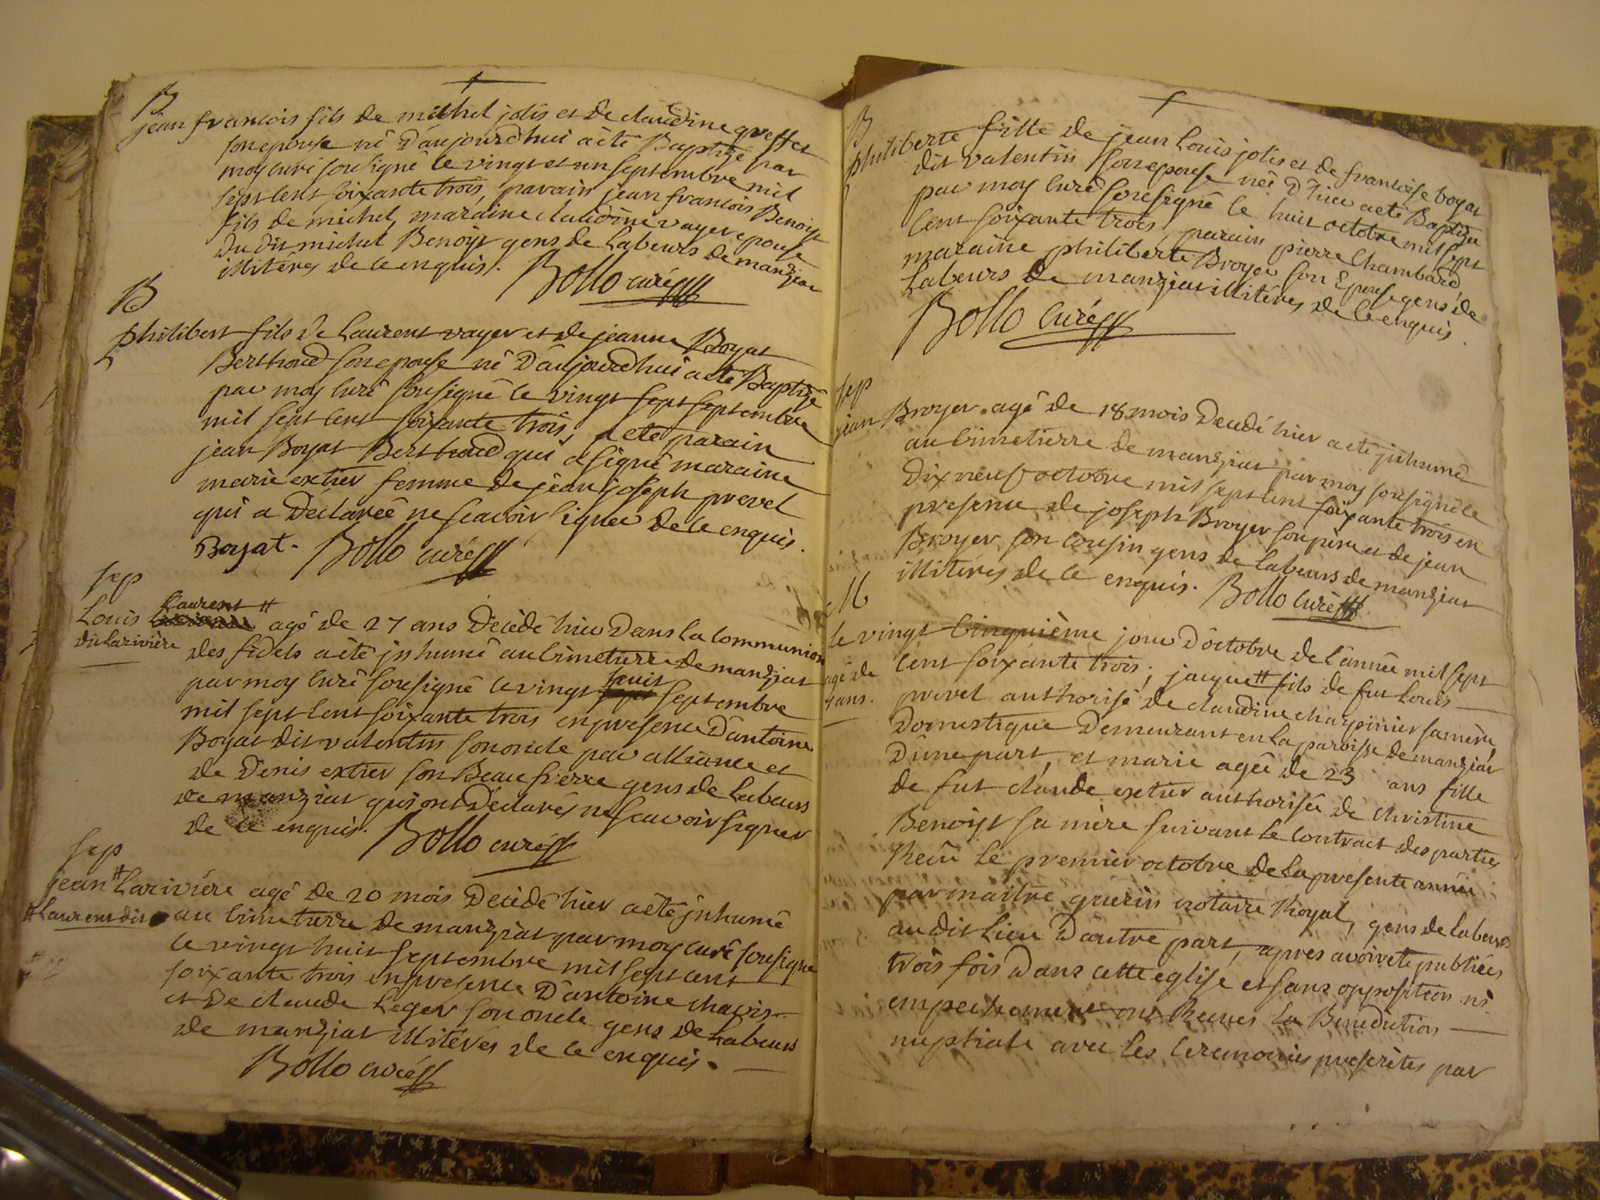 B
jean francois fils de michel jolis et de claudine greffet
son epouse né d'aujourdhui a êté Baptizé par
moy curé sousigné le vingt et un septembre mil
sept cent soixante trois, parain jean francois Benoist
fils de michel, maraine claudine vayer epouse
du dit michel Benoist gens de Labeurs de manziat
illitérés de ce enquis. Bollo curé
B
philibert fils de Laurent vayer et de jeanne Boyat
Berthoud son epouse né d'aujourdhui a eté Baptizé
par moy curé sousigné le vingt sept septembre
mil sept cent soixante trois, a eté parain
jean Boyat Berthoud qui a signé maraine
marie extier femme de jean joseph prevel
qui a déclarée ne scavoir signer de ce enquis.
Boyat. Bollo curé
sep
Louis Laurent # agé de 27 ans décédé hier dans la communion
dit Larivière
des fidels a êté jnhumé au cimetierre de manziat
par moy curé sousigné le vingt huit septembre
mil sept cent soixante trois en presence d'antoine
Boyat dit valentin son oncle par alliance et
de denis extier son Beau frère gens de Labeurs
de manziat qui ont déclarés ne scavoir signer
de ce enquis. Bollo curé
sep
jean # Larivière agé de 20 mois décédé hier a êté jnhumé
# Laurent dit
au cimetierre de manziat par moy curé sousigné
le vingt huit septembre mil sept cent
soixante trois en presence d'antoine chavis
et de claude Leger son oncle gens de Labeurs
de manziat illitérés de ce enquis.
Bollo curé
B
philiberte fille de jean Louis jolis et de francoise boyat
dit valentin son epouse née d'hier a eté Baptizée
par moy curé sousigné le huit octobre mil sept
cent soixante trois, parain pierre Chambard
maraine philiberte Broyer son Epouse gens de
Labeurs de manziat illitérés de ce enquis.
Bollo curé
sep
jean Broyer agé de 18 mois décédé hier a eté jnhumé
au cimetierre de manziat par moy sousigné le
dix neuf octobre mil sept cent soixante trois en
presence de joseph Broyer son père et de jean
Broyer son cousin gens de Labeurs de manziat
illitérés de ce enquis. Bollo curé
M
le vingt cinquième jour d'octobre de l'année mil sept
cent soixante trois, jacque # fils de fut Louis
agé de
ans.
prevel authorisé de claudine charpinier sa mère,
domestique demeurant en la paroisse de manziat
d'une part, et marie agée de 23 ans fille
de fut claude extier authorisée de christine
Benoist sa mère suivant le contract des parties
Recu le premier octobre de la presente année
par maitre guerin notaire Royal, gens de labeurs
au dit Lieu d'autre part, apres avoir eté publiées
trois fois dans cette eglise et sans opposition ni
empechement ont Recues la Benediction
nuptiale avec les ceremonies prescrites par